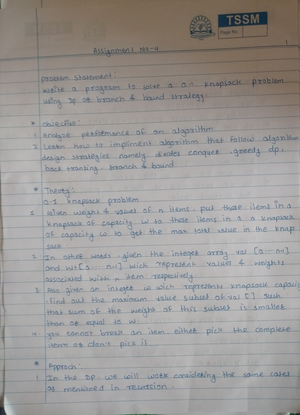 TSSM
Page No.
Assignment No-4
Problem statement:
Write a program to solve a 0n knapsack problem
using DP or branch & bound strategy.
* objective:
1. Analyze performance of an algorithm
2. Learn how to impliment algorithm that follow algorithm
design strategies namely divides conquer, greedy, dp,
back tranting, branch & bound.
* Theory:
0-1 knapsack problem
1. Given weight & values of n items, put these items in a
knapsack of capacity w to these items in a a knapsack
of capacity w to get the max total value in the knap
sack
2. In other words, given the integer array val [0-n-1]
and wt[0-n-1] wich represent values & weights
associated with n item respectively
3. Also given an integer w wich represents knapsack capacity
find out the maximum value subset of val [] such
that sum of the weight of this subset is smaller
than or equal to w.
4. you cannot break an item either pick the complete
item or don't pick it
* Approch:
1. In the DP we will work considering the same cases
as mentioned in recursion.